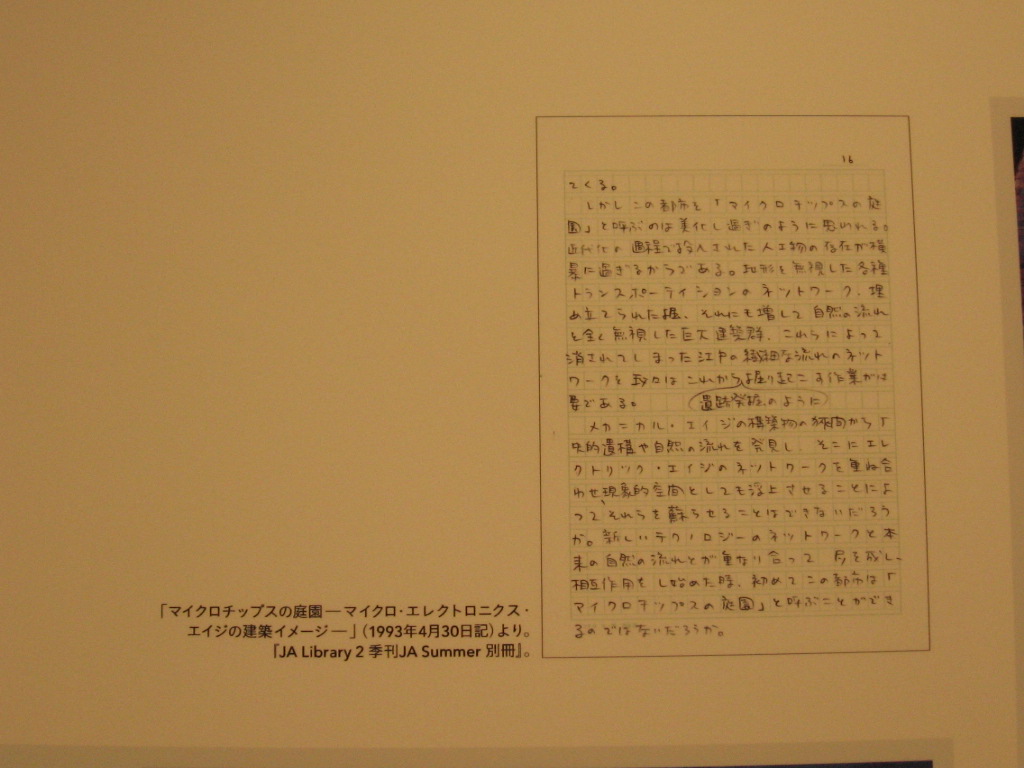 16
てくる。
しかしこの都市を「マイクロチップスの庭
園」と呼ぶのは美化し過ぎのように思われる。
近代化の過程で投入された人工物の存在が複
景に過ぎるからである。地形を無視した各種
トランスポーテイションのネットワーク、埋
め立てられた堀、それにも増して自然の流れ
を全く無視した巨大建築群、これらによって
消されてしまった江戸の繊細な流れのネット
ワークを我々はこれから掘り起こす作業が必
要である。
遺跡発掘のように
メカニカル・エイジの構築物の狭間から
史的遺構や自然の流れを発見し、そこにエレ
クトリック・エイジのネットワークを重ね合
わせ、現象的空間としても浮上させることによ
って、それらを蘇らせることはできないだろう
か。新しいテクノロジーのネットワークと本
来の自然の流れとが重なり合って
相互作用をし始めた時、初めてこの都市は「
マイクロチップスの庭園」と呼ぶことができ
るのではないだろうか。
「マイクロチップスの庭園―マイクロ・エレクトロニクス・
エイジの建築イメージ―」(1993年4月30日記)より。
『JA Library 2 季刊JA Summer 別冊』。